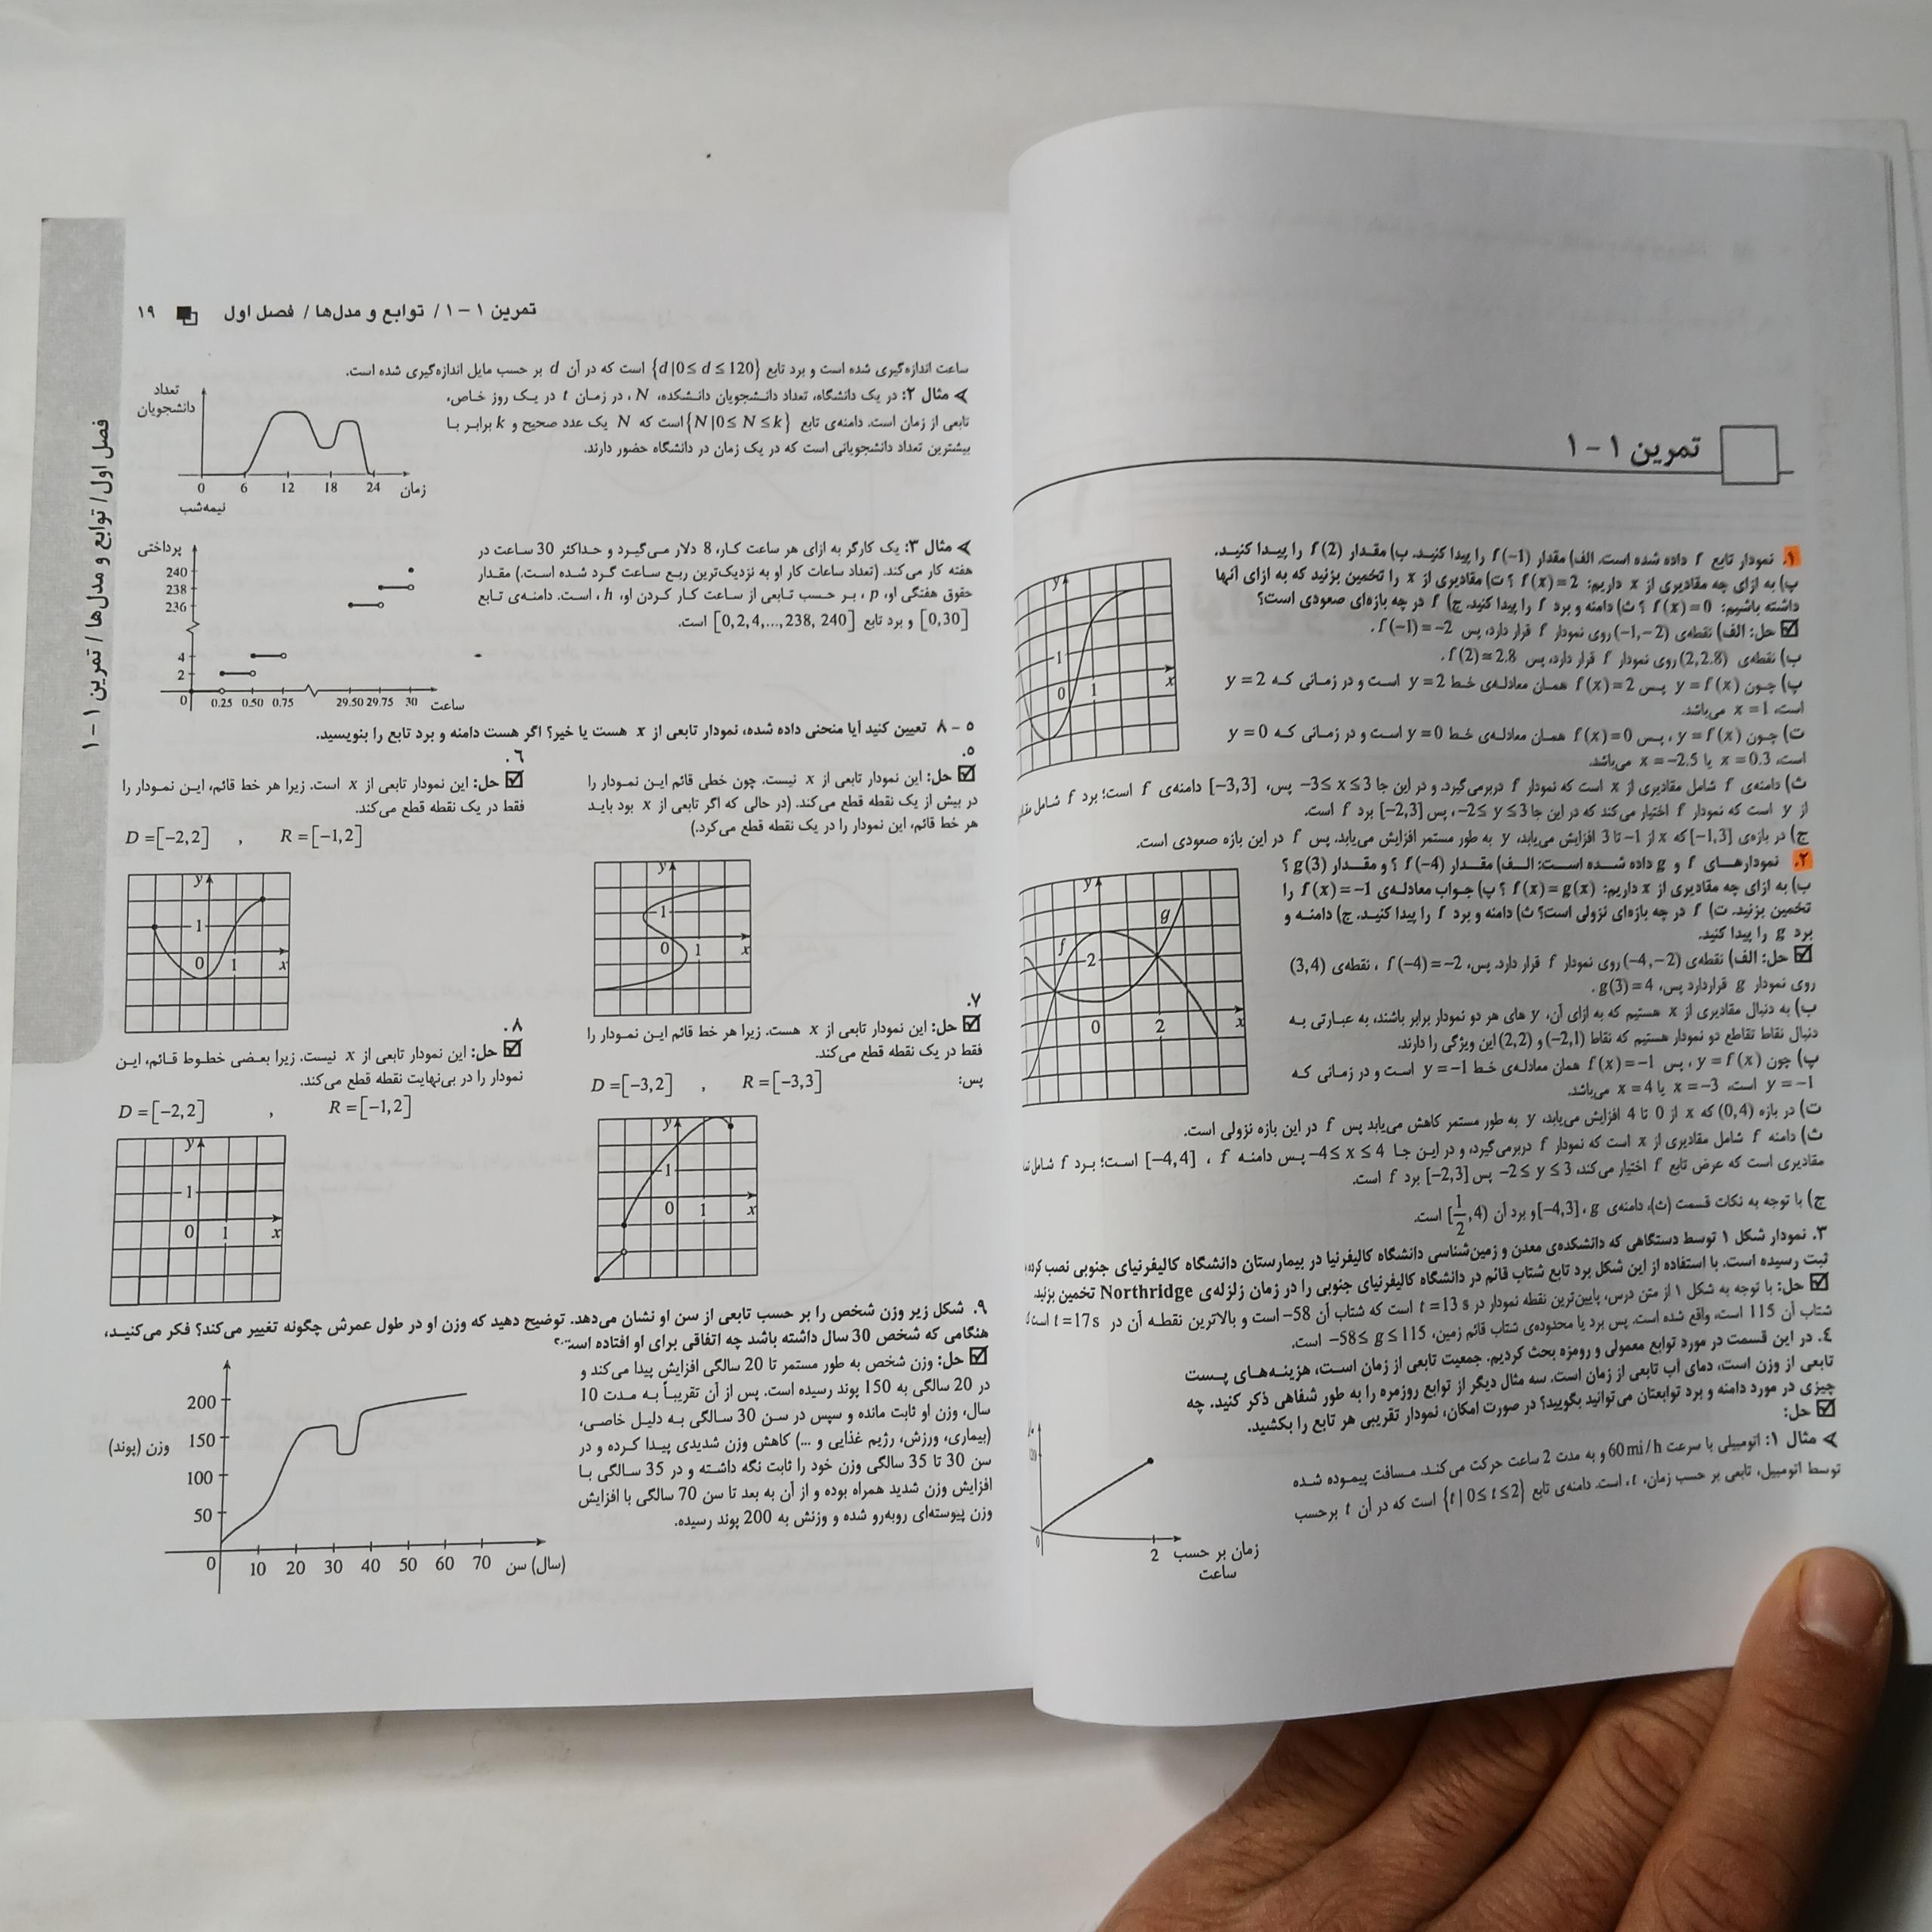 تمرین ۱-۱
۱. نمودار تابع f داده شده است. الف) مقدار f(−1) را پیدا کنید. ب) مقدار f(2) را پیدا کنید.
پ) به ازای چه مقادیری از x داریم: f(x)=2 ؟ ت) مقادیری از x را تخمین بزنید که به ازای آنها
داشته باشیم: f(x)=0 ؟ ث) دامنه و برد f را پیدا کنید. ج) f در چه بازه‌ای صعودی است؟
حل: الف) نقطه‌ی (−1,−2) روی نمودار f قرار دارد، پس f(−1)=−2.
ب) نقطه‌ی (2,2.8) روی نمودار f قرار دارد، پس f(2)=2.8.
پ) چون y=f(x) پس f(x)=2 همان معادله‌ی خط y=2 است و در زمانی که y=2
است، x=1 می‌باشد.
ت) چون y=f(x)، پس f(x)=0 همان معادله‌ی خط y=0 است و در زمانی که y=0
است، x=0.3 یا x=−2.5 می‌باشد.
ث) دامنه‌ی f شامل مقادیری از x است که نمودار f دربرمی‌گیرد. و در این جا −3≤x≤3 پس، [−3,3] دامنه‌ی f است؛ برد f شامل
از y است که نمودار f اختیار می‌کند که در این جا −2≤y≤3، پس [−2,3] برد f است.
ج) در بازه‌ی [−1,3] که x از −1 تا 3 افزایش می‌یابد، y به طور مستمر افزایش می‌یابد. پس f در این بازه صعودی است.
y
1
0 1 x
۲. نمودارهای f و g داده شده است: الف) مقدار f(−4) ؟ و مقدار g(3) ؟
ب) به ازای چه مقادیری از x داریم: f(x)=g(x) ؟ پ) جواب معادله‌ی f(x)=−1 را
تخمین بزنید. ت) f در چه بازه‌ای نزولی است؟ ث) دامنه و برد f را پیدا کنید. ج) دامنه و
برد g را پیدا کنید.
حل: الف) نقطه‌ی (−4,−2) روی نمودار f قرار دارد. پس، f(−4)=−2 ، نقطه‌ی (3,4)
روی نمودار g قراردارد پس، g(3)=4.
ب) به دنبال مقادیری از x هستیم که به ازای آن، y های هر دو نمودار برابر باشند، به عبارتی به
دنبال نقاط تقاطع دو نمودار هستیم که نقاط (−2,1) و (2,2) این ویژگی را دارند.
پ) چون y=f(x)، پس f(x)=−1 همان معادله‌ی خط y=−1 است و در زمانی که
y=−1 است، x=−3 یا x=4 می‌باشد.
ت) در بازه (0,4) که x از 0 تا 4 افزایش می‌یابد، y به طور مستمر کاهش می‌یابد پس f در این بازه نزولی است.
ث) دامنه f شامل مقادیری از x است که نمودار f دربرمی‌گیرد، و در این جا −4≤x≤4 پس دامنه f ، [−4,4] است؛ برد f شامل
مقادیری است که عرض تابع f اختیار می‌کند، −2≤y≤3 پس [−2,3] برد f است.
ج) با توجه به نکات قسمت (ث)، دامنه‌ی g، [−4,3] و برد آن [1/2,4) است.
y
f g
2
0 2 x
۳. نمودار شکل ۱ توسط دستگاهی که دانشکده‌ی معدن و زمین‌شناسی دانشگاه کالیفرنیا در بیمارستان دانشگاه کالیفرنیای جنوبی نصب کرده
ثبت رسیده است. با استفاده از این شکل برد تابع شتاب قائم در دانشگاه کالیفرنیای جنوبی را در زمان زلزله‌ی Northridge تخمین بزنید.
حل: با توجه به شکل ۱ از متن درس، پایین‌ترین نقطه نمودار در t=13s است که شتاب آن −58 است و بالاترین نقطه آن در t=17s است
شتاب آن 115 است، واقع شده است. پس برد یا محدوده‌ی شتاب قائم زمین، −58≤g≤115 است.
٤. در این قسمت در مورد توابع معمولی و رومزه بحث کردیم. جمعیت تابعی از زمان است، هزینه‌های پست
تابعی از وزن است، دمای آب تابعی از زمان است. سه مثال دیگر از توابع روزمره را به طور شفاهی ذکر کنید. چه
چیزی در مورد دامنه و برد توابعتان می‌توانید بگویید؟ در صورت امکان، نمودار تقریبی هر تابع را بکشید.
حل:
مثال ۱: اتومبیلی با سرعت 60mi/h و به مدت 2 ساعت حرکت می‌کند. مسافت پیموده شده
توسط اتومبیل، تابعی بر حسب زمان، t، است. دامنه‌ی تابع {t|0≤t≤2} است که در آن t برحسب
0 2
زمان بر حسب
ساعت
تمرین ۱-۱/ توابع و مدل‌ها / فصل اول ۱۹
ساعت اندازه‌گیری شده است و برد تابع {d|0≤d≤120} است که در آن d بر حسب مایل اندازه‌گیری شده است.
مثال ۲: در یک دانشگاه، تعداد دانشجویان دانشکده، N، در زمان t در یک روز خاص،
تابعی از زمان است. دامنه‌ی تابع {N|0≤N≤k} است که N یک عدد صحیح و k برابر با
بیشترین تعداد دانشجویانی است که در یک زمان در دانشگاه حضور دارند.
تعداد
دانشجویان
0 6 12 18 24 زمان
نیمه‌شب
مثال ۳: یک کارگر به ازای هر ساعت کار، 8 دلار می‌گیرد و حداکثر 30 ساعت در
هفته کار می‌کند. (تعداد ساعات کار او به نزدیک‌ترین ربع ساعت گرد شده است.) مقدار
حقوق هفتگی او، p ، بر حسب تابعی از ساعت کار کردن او، h ، است. دامنه‌ی تابع
[0,30] و برد تابع [0,2,4,...,238,240] است.
پرداختی
240
238
236
4
2
0 0.25 0.50 0.75 29.50 29.75 30 ساعت
۵-۸ تعیین کنید آیا منحنی داده شده، نمودار تابعی از x هست یا خیر؟ اگر هست دامنه و برد تابع را بنویسید.
۵.
حل: این نمودار تابعی از x نیست. چون خطی قائم این نمودار را
در بیش از یک نقطه قطع می‌کند. (در حالی که اگر تابعی از x بود باید
هر خط قائم، این نمودار را در یک نقطه قطع می‌کرد.)
y
1
0 1 x
۶.
حل: این نمودار تابعی از x است. زیرا هر خط قائم، این نمودار را
فقط در یک نقطه قطع می‌کند.
D=[−2,2] , R=[−1,2]
y
1
0 1 x
۷.
حل: این نمودار تابعی از x هست. زیرا هر خط قائم این نمودار را
فقط در یک نقطه قطع می‌کند.
پس: D=[−3,2] , R=[−3,3]
y
1
0 1 x
۸.
حل: این نمودار تابعی از x نیست. زیرا بعضی خطوط قائم، این
نمودار را در بی‌نهایت نقطه قطع می‌کند.
D=[−2,2] , R=[−1,2]
y
1
0 1 x
۹. شکل زیر وزن شخص را بر حسب تابعی از سن او نشان می‌دهد. توضیح دهید که وزن او در طول عمرش چگونه تغییر می‌کند؟ فکر می‌کنید،
هنگامی که شخص 30 سال داشته باشد چه اتفاقی برای او افتاده است؟
حل: وزن شخص به طور مستمر تا 20 سالگی افزایش پیدا می‌کند و
در 20 سالگی به 150 پوند رسیده است. پس از آن تقریباً به مدت 10
سال، وزن او ثابت مانده و سپس در سن 30 سالگی به دلیل خاصی،
(بیماری، ورزش، رژیم غذایی و ...) کاهش وزن شدیدی پیدا کرده و در
سن 30 تا 35 سالگی وزن خود را ثابت نگه داشته و در 35 سالگی با
افزایش وزن شدید همراه بوده و از آن به بعد تا سن 70 سالگی با افزایش
وزن پیوسته‌ای روبه‌رو شده و وزنش به 200 پوند رسیده.
وزن (پوند)
200
150
100
50
0 10 20 30 40 50 60 70 سن (سال)
فصل اول/ توابع و مدل‌ها / تمرین ۱-۱